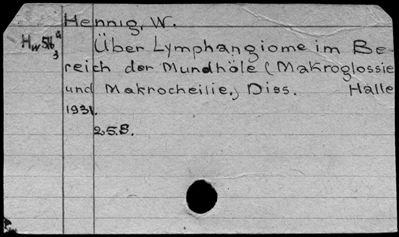 Hennig, W.
Hw 516 a
3
Über Lymphangiome im Be-
reich der Mundhöle (Makroglossie
und Makrocheilie.) Diss. Halle
1931.
25 S.